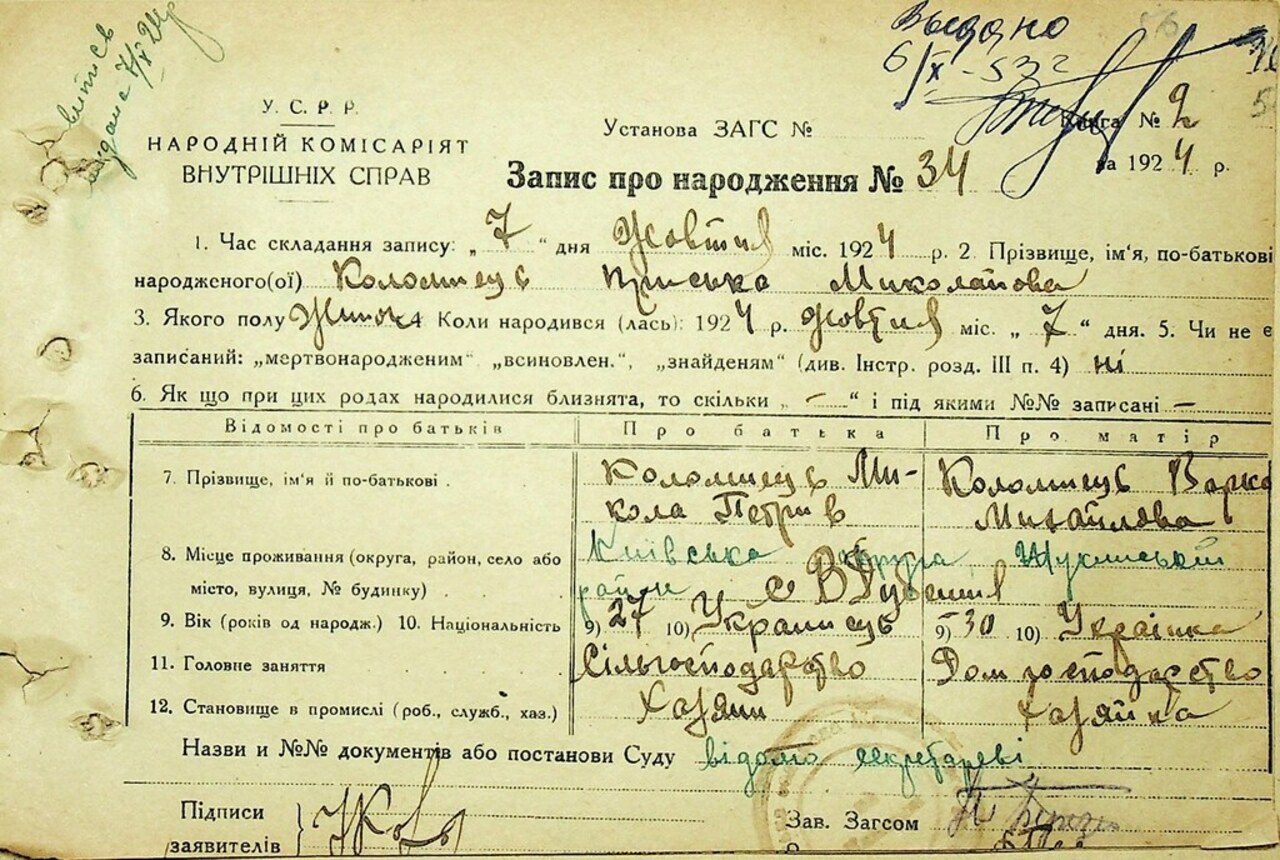 витись
видана 7/XI 24р
Выдано
6/X - 53 г
У. С. Р. Р.
НАРОДНІЙ КОМІСАРІЯТ
ВНУТРІШНІХ СПРАВ
Установа ЗАГС №
Книга № 2
за 1924 р.
Запис про народження № 34
1. Час складання запису: „ 7 “ дня Жовтня міс. 1924 р. 2. Прізвище, ім'я, по-батькові
народженого(ої) Коломиець Приська Миколайова
3. Якого полу Жиноч. 4 Коли народився (лась): 1924 р. Жовтня міс. „ 7 “ дня. 5. Чи не є
записаний: „мертвонародженим“ „всиновлен.“, „знайденям“ (див. Інстр. розд. III п. 4) ні
6. Як що при цих родах народилися близнята, то скільки „ — “ і під якими №№ записані —
Відомості про батьків Про батька Про матір
7. Прізвище, ім'я й по-батькові . Коломиець Ми- Коломиець Варка
кола Петрив Михайлова
8. Місце проживання (округа, район, село або Київська округа
місто, вулиця, № будинку) . . район с В Дубечня
9. Вік (років од народж.) 10. Національність 9) 27 10) Украинець 9) 30 10) Українка
11. Головне заняття Сільгосподарство Домгосподарство
12. Становище в промислі (роб., служб., хаз.) Хазяин Хазяйка
Назви и №№ документів або постанови Суду відомо секретареві
Підписи
заявителів
Зав. Загсом